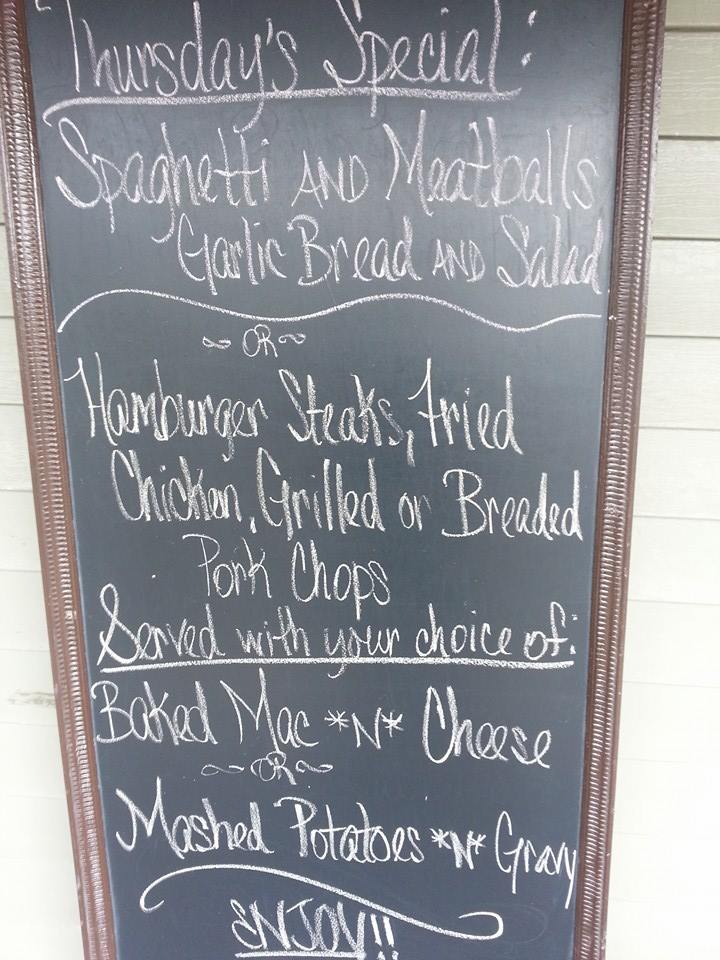 Thursday's Special:
Spaghetti AND Meatballs
Garlic Bread AND Salad
~ OR ~
Hamburger Steaks, Fried
Chicken, Grilled or Breaded
Pork Chops
Served with your choice of:
Baked Mac *N* Cheese
~ OR ~
Mashed Potatoes *N* Gravy
ENJOY!!